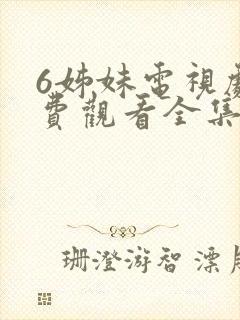 6姊妹電視劇
費觀看全集
珊澄游智漂